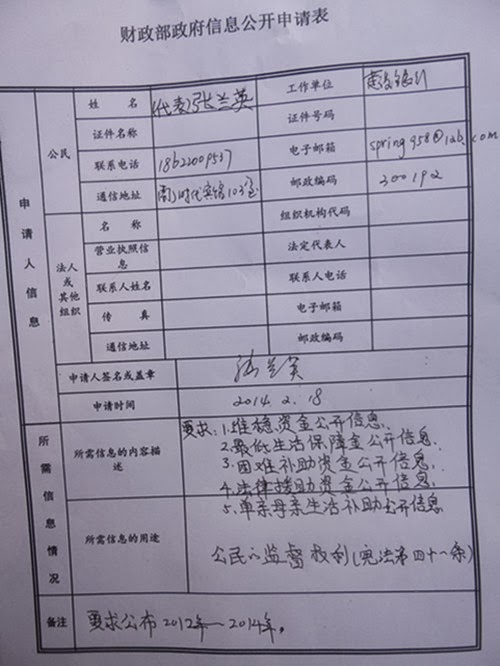 财政部政府信息公开申请表
申请人信息
公民
姓名 代表张兰英 工作单位 建设银行
证件名称 证件号码
联系电话 18622009537 电子邮箱
通信地址 时代宾馆103室 邮政编码 300192
法人或其他组织
名称 组织机构代码
营业执照信息 法定代表人
联系人姓名 联系人电话
传真 电子邮箱
通信地址 邮政编码
申请人签名或盖章 张兰英
申请时间 2014.2.18
所需信息情况
所需信息的内容描述
要求:1.维稳资金公开信息.
2.最低生活保障金公开信息.
3.困难补助资金公开信息.
4.法律援助资金公开信息.
5.单亲母亲生活补助公开信息
所需信息的用途
公民的监督权利(宪法第四十一条)
备注 要求公布2012年—2014年。